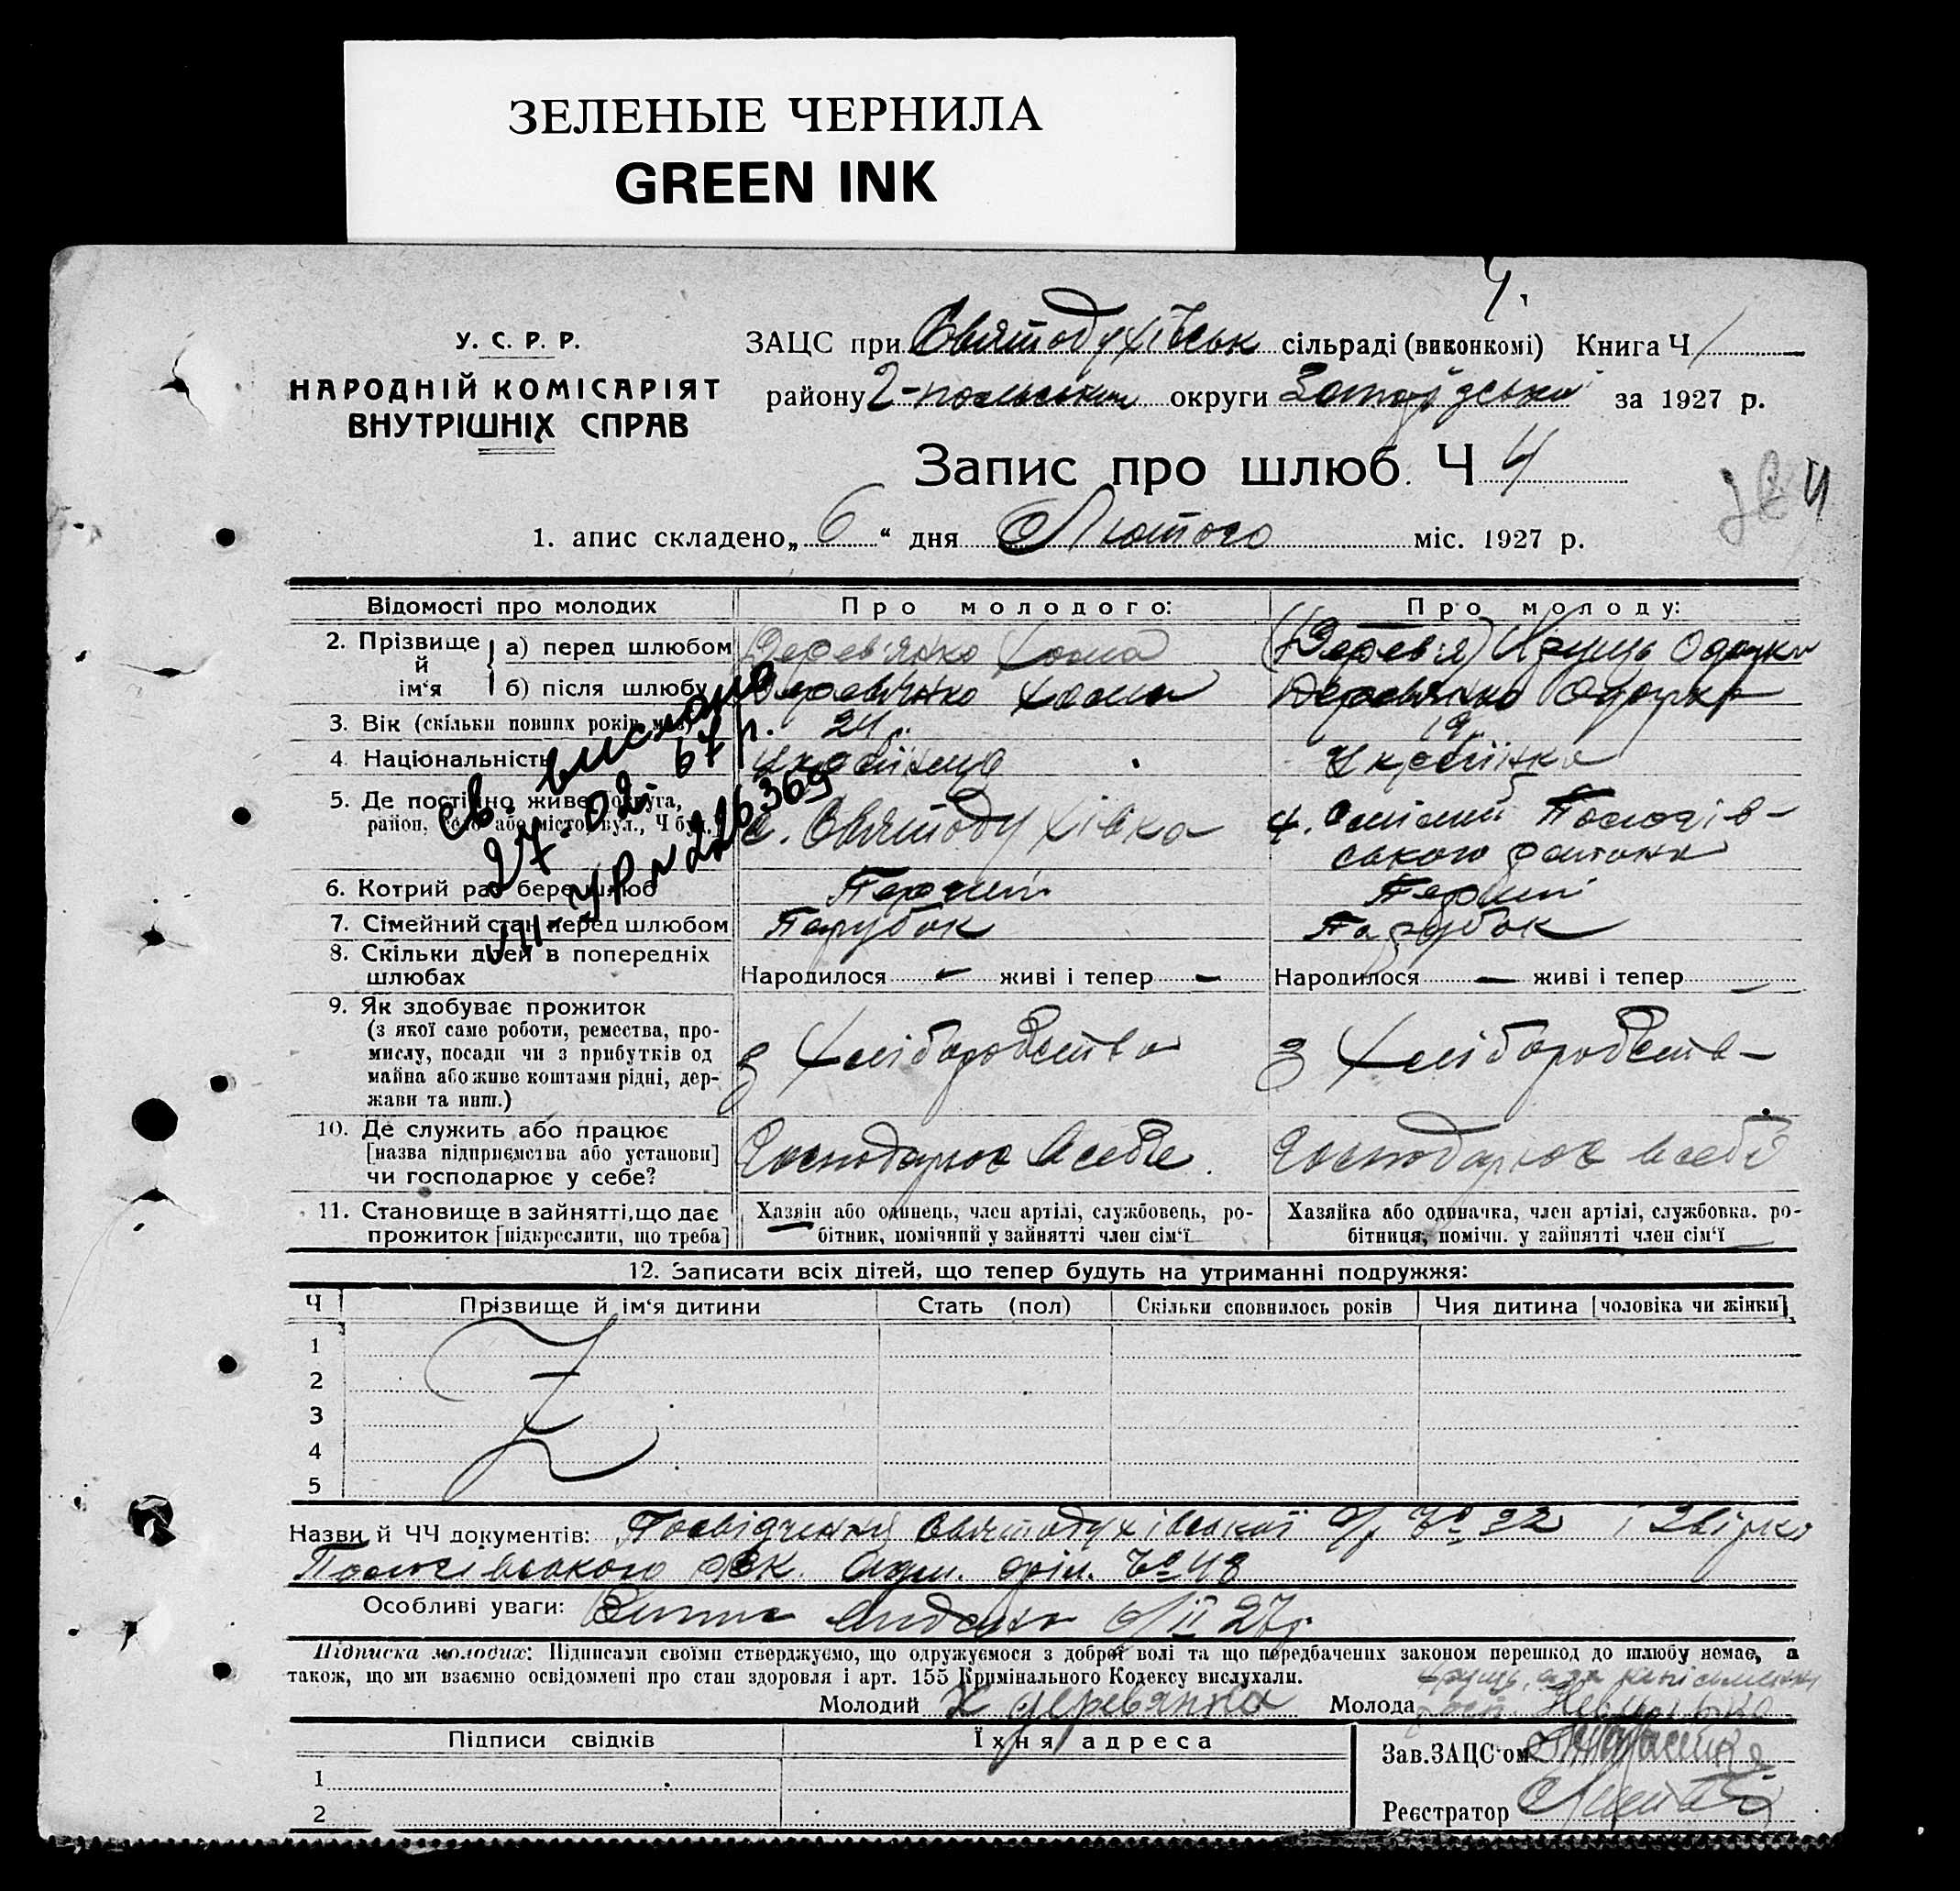 ЗЕЛЕНЫЕ ЧЕРНИЛА
GREEN INK
4.
У. С. Р. Р.
НАРОДНІЙ КОМІСАРІЯТ
ВНУТРІШНІХ СПРАВ
ЗАЦС при Святодухівськ сільраді (виконкомі) Книга Ч 1
району округи за 1927 р.
Запис про шлюб. Ч 4
4
1. апис складено „ 6 “ дня Лютого міс. 1927 р.
Відомості про молодих Про молодого: Про молоду:
2. Прізвище й ім‘я а) перед шлюбом Дерев'янко Хома (Дерев'я) Одарки
б) після шлюбу Деревянко Хома Деревянко Одарка
3. Вік (скільки повних років має) 24 19
4. Національність Українець Українка
5. Де постійно живе округа, с. Святодухівка
район, село або місто, вул., Ч буд. ського району
св. выслано
27.02. 67 р.
УР № 226369
6. Котрий раз бере шлюб Перший Перший
7. Сімейний стан перед шлюбом Парубок Парубок
8. Скільки дітей в попередніх
шлюбах Народилося - живі і тепер - Народилося - живі і тепер -
9. Як здобуває прожиток
(з якої саме роботи, ремества, про-
мислу, посади чи з прибутків од з Хліборобства з Хліборобств-
майна або живе коштами рідні, дер-
жави та инш.)
10. Де служить або працює
[назва підприємства або установи] Господарює в себе. Господарює в себе
чи господарює у себе?
11. Становище в зайнятті, що дає Хазяїн або одинець, член артілі, службовець, ро- Хазяйка або одиначка, член артілі, службовка, ро-
прожиток [підкреслити, що треба] бітник, помічний у зайнятті член сім‘ї бітниця, помічн. у зайнятті член сім‘ї
12. Записати всіх дітей, що тепер будуть на утриманні подружжя:
Ч Прізвище й ім‘я дитини Стать (пол) Скільки сповнилось років Чия дитина [чоловіка чи жінки]
1
2
3
4
5
Назви й ЧЧ документів: Посвідчення Святодухівської с/р № 32 і
Особливі уваги: 6/II 27 р.
Підписка молодих: Підписами своїми стверджуємо, що одружуємося з доброї волі та що передбачених законом перешкод до шлюбу немає, а
також, що ми взаємно освідомлені про стан здоровля і арт. 155 Кримінального Кодексу вислухали.
Молодий Х Деревянко Молода
Підписи свідків Їхня адреса
Зав. ЗАЦС‘ом
1
Реєстратор
2